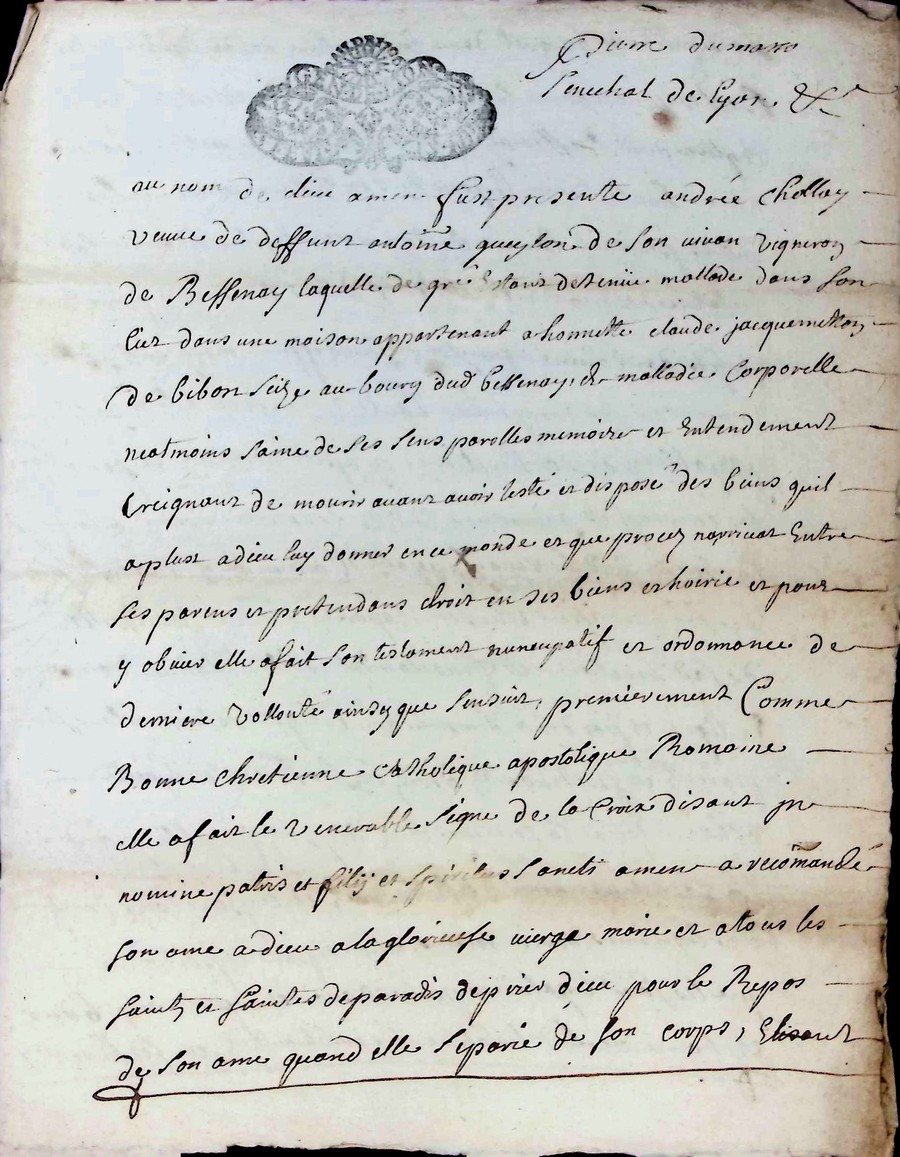 Pierre dumarro
Senechal de Lyon &c
au nom de dieu amen fust presente andrée Chollay
veuve de deffunt antoine queylon de son vivan vigneron
de Bessenay laquelle de gré Estant detenüe mallade dans son
lict dans une maison appartenant a honnette claude jacquemetton
de bibon scize au bourg dud bessenay, de malladie Corporelle
neatmoins saine de ses sens parolles memoire et Entendement
Creignant de mourir avant avoir testé et disposé des biens quil
a plust a dieu luy donner en ce monde et que procez narrivat Entre
ses parens et pretendans droit en ses biens et hoirie et pour
y obvier elle a fait son testament nuncupatif et ordonnance de
derniere vollonté ainsy que sensuit, premierement Comme
Bonne chretienne catholique apostolique Romaine
elle a fait le venerable signe de la Croix disant jn
nomine patris et filij et spiritus sancti amen a recomandé
son ame a dieu a la glorieuse vierge marie et a tous les
saints et saintes de paradis de prier dieu pour le Repos
de son ame quand elle separée de son corps, Elisant